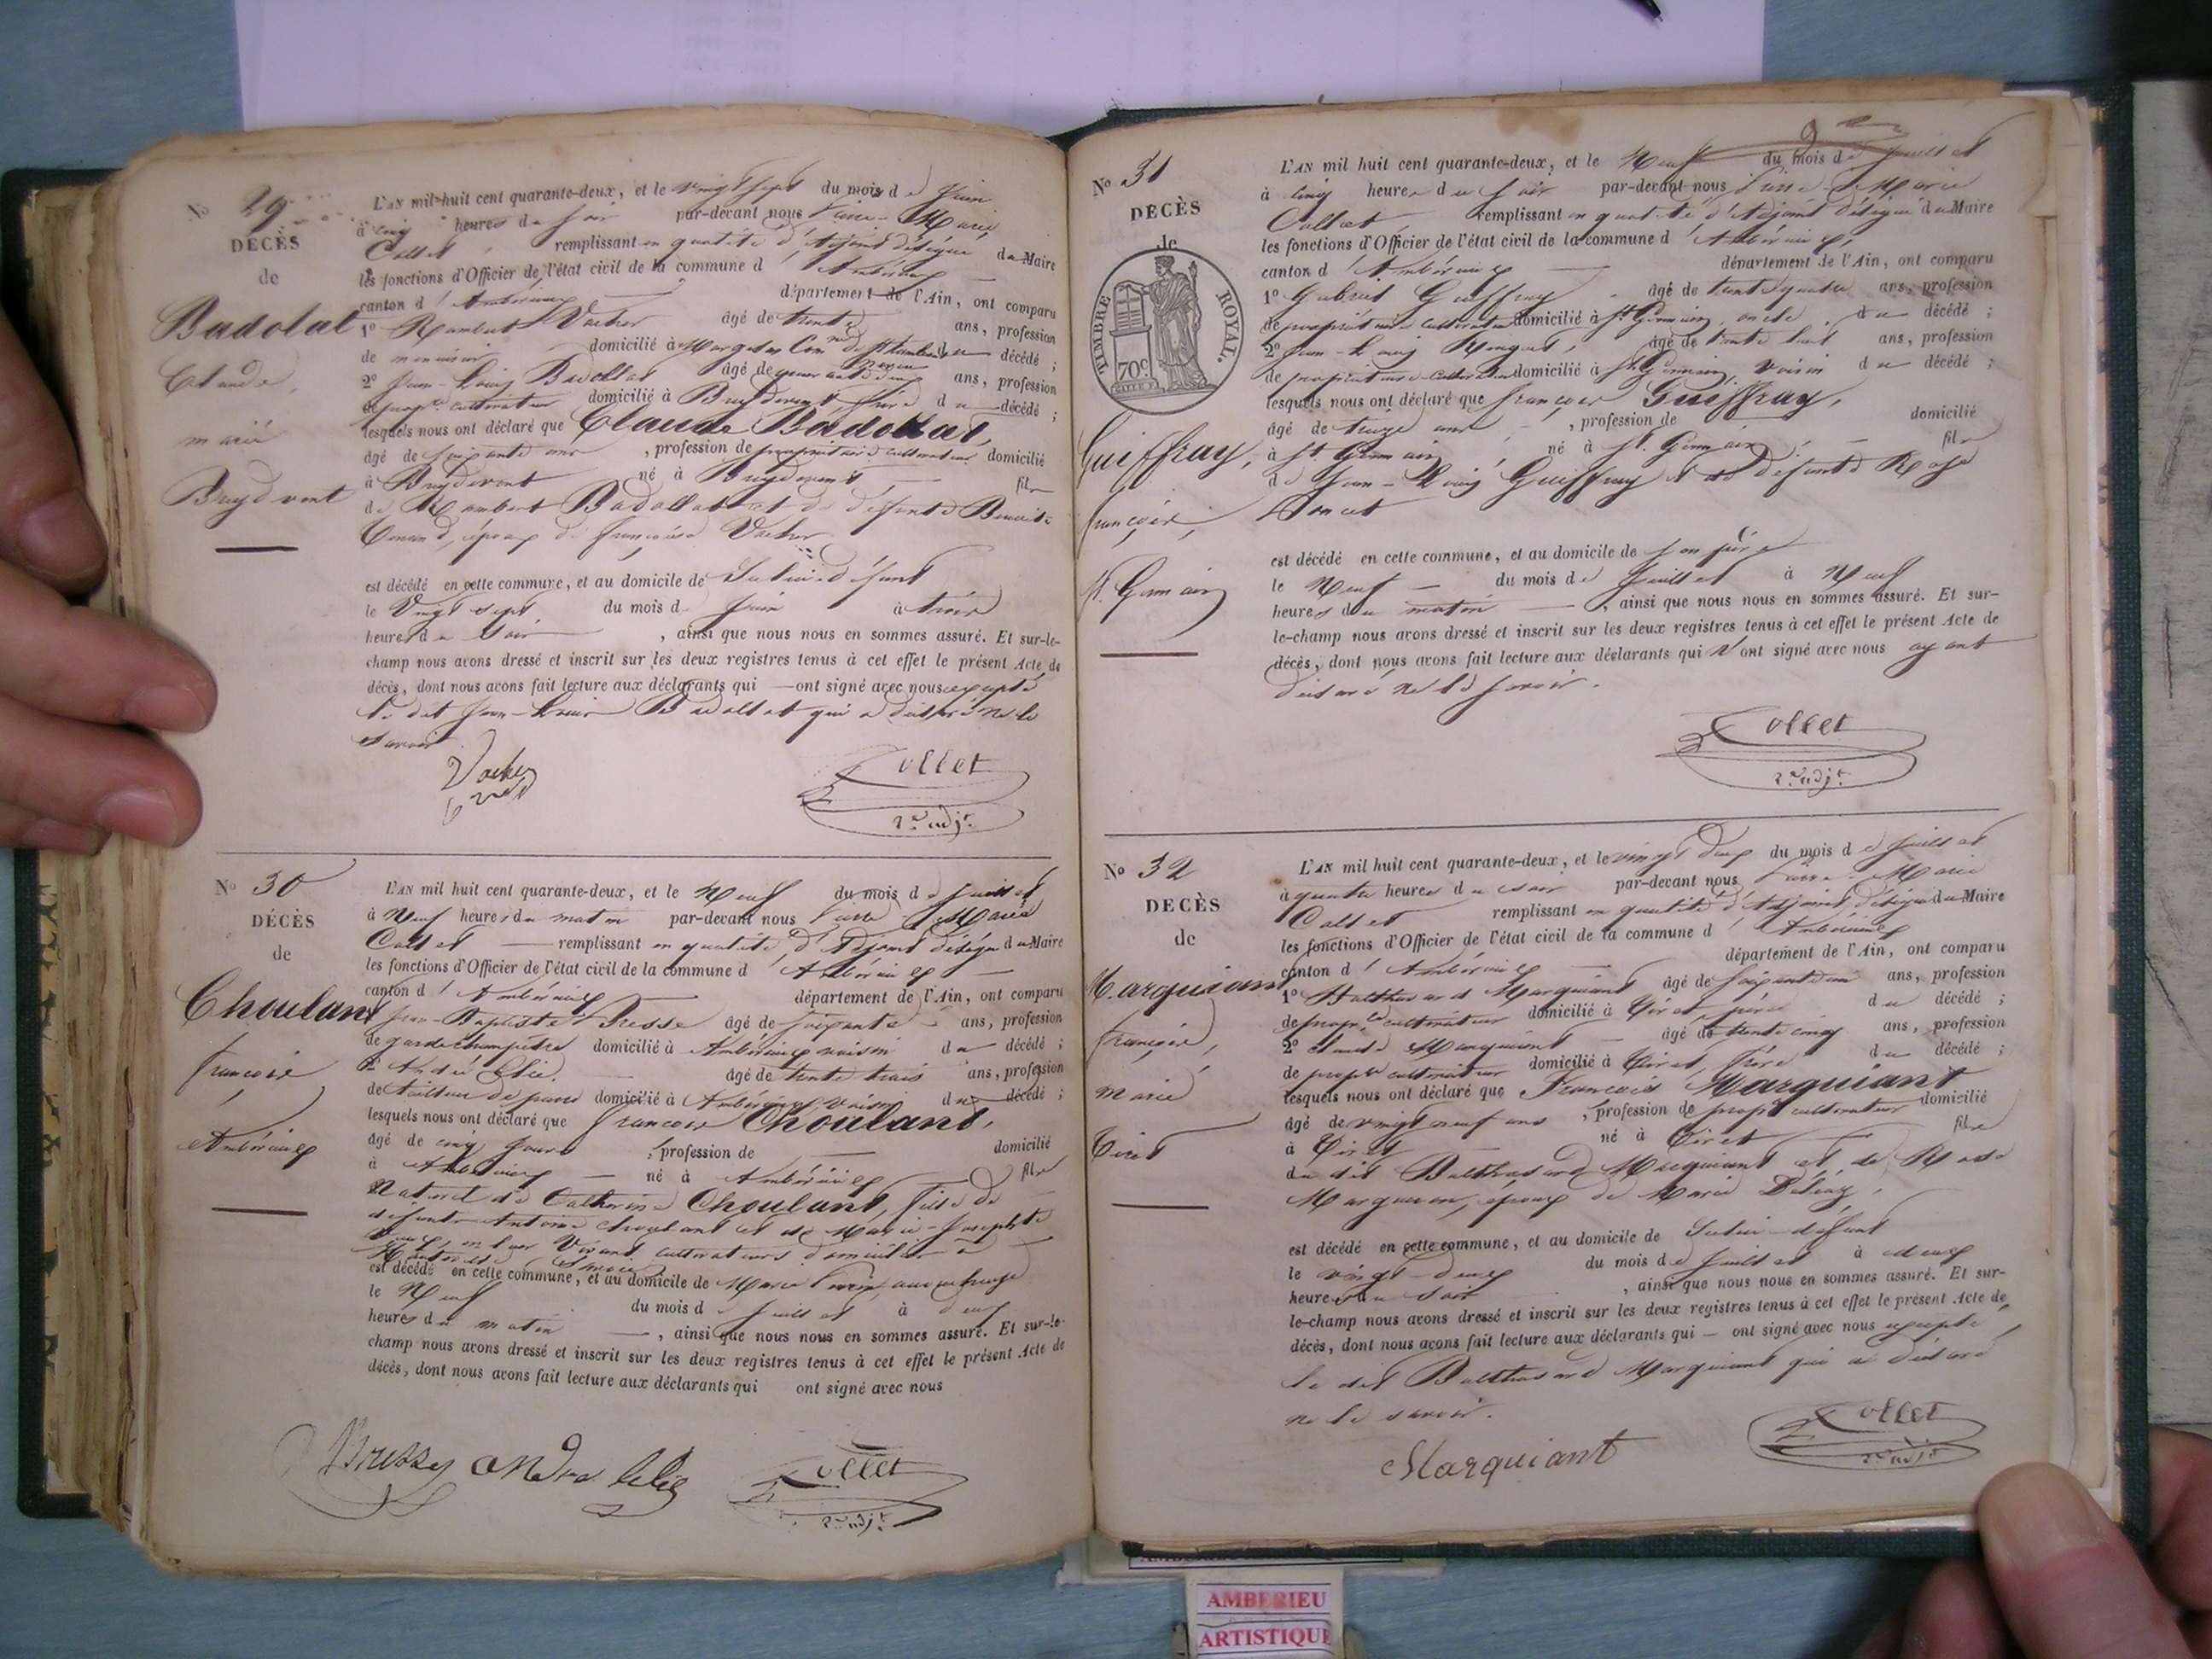 No 29
DÉCÈS
de
Badolal
Claude,
marié
Buydvent
L'AN mil-huit cent quarante-deux, et le vingt sept du mois de Juin
à cinq heures du soir par-devant nous Pierre-Marie
Collet remplissant en qualité d'Adjoint délégué du Maire
les fonctions d'Officier de l'état civil de la commune d'Ambérieux
canton d'Ambérieux département de l'Ain, ont comparu
1o Rambert Vacher âgé de trente ans, profession
de domicilié à décédé ;
2o Jean-Louis Badollat âgé de ans, profession
de propre cultivateur domicilié à Buydevent, frère du décédé ;
lesquels nous ont déclaré que Claude Badollat,
âgé de soixante ans, profession de propriétaire cultivateur domicilié
à Buydevent né à Buydevent fils
de Rambert Badollat et de défunte Benoite
époux de Françoise Vacher
est décédé en cette commune, et au domicile de Lui défunt
le Vingt sept du mois de Juin à trois
heures du Soir, ainsi que nous nous en sommes assuré. Et sur-le-
champ nous avons dressé et inscrit sur les deux registres tenus à cet effet le présent Acte de
décès, dont nous avons fait lecture aux déclarants qui — ont signé avec nous excepté
le dit Jean-Louis Badollat qui a déclaré ne le
savoir
Vacher
Collet
2me adjt
No 30
DÉCÈS
de
Choulant
François
Ambérieux
L'AN mil huit cent quarante-deux, et le Neuf du mois de Juillet
à Neuf heures du matin par-devant nous Pierre-Marie
Collet remplissant en qualité d'Adjoint délégué du Maire
les fonctions d'Officier de l'état civil de la commune d'Ambérieux
canton d'Ambérieux département de l'Ain, ont comparu
Jean-Baptiste Bresse âgé de soixante ans, profession
de garde champêtre domicilié à Ambérieux voisin du décédé ;
2o André Elie. âgé de trente trois ans, profession
de tailleur de pierre domicilié à Ambérieux, voisin du décédé ;
lesquels nous ont déclaré que François Choulant,
âgé de cinq jours, profession de domicilié
à Ambérieux né à Ambérieux fils
Naturel de Catherine Choulant, fille de
défunt Antoine Choulant et de Marie-Josephte
Vivant cultivateurs domiciliés à
est décédé en cette commune, et au domicile de Marie
le Neuf du mois de Juillet à deux
heures du matin, ainsi que nous nous en sommes assuré. Et sur-le-
champ nous avons dressé et inscrit sur les deux registres tenus à cet effet le présent Acte de
décès, dont nous avons fait lecture aux déclarants qui ont signé avec nous
Collet
2me adjt
No 31
DÉCÈS
de
TIMBRE ROYAL.
70c
Guiffray,
François,
St. Germain
L'AN mil huit cent quarante-deux, et le Neuf du mois de Juillet
à cinq heures du soir par-devant nous Pierre-Marie
Collet remplissant en qualité d'Adjoint délégué du Maire
les fonctions d'Officier de l'état civil de la commune d'Ambérieux,
canton d'Ambérieux département de l'Ain, ont comparu
1o Gabriel Guiffray âgé de trente quatre ans, profession
de propriétaire cultivateur domicilié à St Germain, oncle du décédé ;
2o Jean-Louis âgé de trente huit ans, profession
de propriétaire-cultivateur domicilié à St Germain, voisin du décédé ;
lesquels nous ont déclaré que François Guiffray,
âgé de treize ans, profession de domicilié
à St Germain, né à St. Germain fils
de Jean-Louis Guiffray et de défunte Rose
Poncet
est décédé en cette commune, et au domicile de son père
le Neuf du mois de Juillet à Neuf
heures du matin, ainsi que nous nous en sommes assuré. Et sur-
le-champ nous avons dressé et inscrit sur les deux registres tenus à cet effet le présent Acte de
décès, dont nous avons fait lecture aux déclarants qui n'ont signé avec nous ayant
déclaré ne le savoir.
Collet
2me adjt
No 32
DÉCÈS
de
Marquiant
François,
marié
Tiret
L'AN mil huit cent quarante-deux, et le vingt deux du mois de Juillet
à quatre heures du soir par-devant nous Pierre-Marie
Collet remplissant en qualité d'Adjoint délégué du Maire
les fonctions d'Officier de l'état civil de la commune d'Ambérieux
canton d'Ambérieux département de l'Ain, ont comparu
1o Balthasard Marquiant âgé de soixante un ans, profession
de propre cultivateur domicilié à Tiret, père du décédé ;
2o Claude Marquiant âgé de trente cinq ans, profession
de propre cultivateur domicilié à Tiret, frère du décédé ;
lesquels nous ont déclaré que François Marquiant
âgé de vingt neuf ans, profession de propre cultivateur domicilié
à Tiret né à Tiret fils
du dit Balthasard Marquiant et de Rose
époux de Marie
est décédé en cette commune, et au domicile de Lui défunt
le vingt-deux du mois de Juillet à deux
heures du soir, ainsi que nous nous en sommes assuré. Et sur-
le-champ nous avons dressé et inscrit sur les deux registres tenus à cet effet le présent Acte de
décès, dont nous avons fait lecture aux déclarants qui — ont signé avec nous excepté,
le dit Balthasard Marquiant qui a déclaré
ne le savoir.
Marquiant
Collet
2me adjt
AMBERIEU
ARTISTIQUE